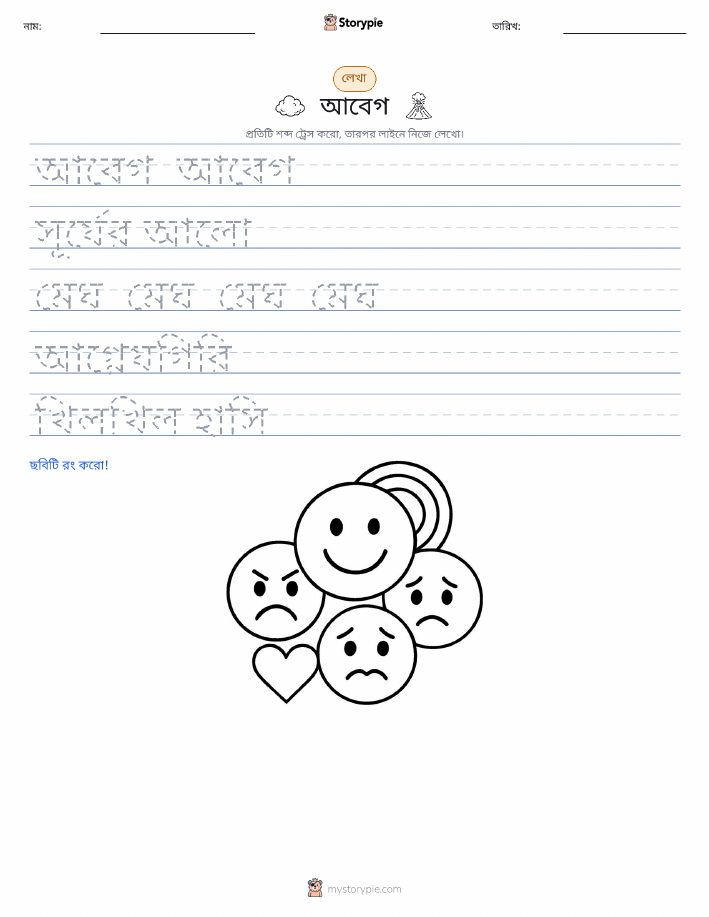 নাম: Storypie তারিখ:
লেখা
আবেগ
প্রতিটি শব্দ ট্রেস করো, তারপর লাইনে নিজে লেখো।
আবেগ আবেগ
সূর্যের আলো
মেঘ মেঘ মেঘ মেঘ
আগ্নেয়গিরি
খিলখিল হাসি
ছবিটি রং করো!
mystorypie.com